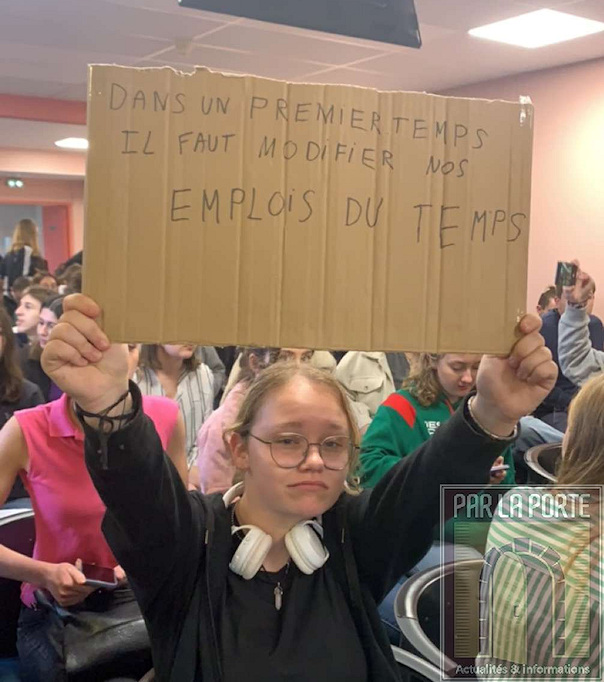 DANS UN PREMIER TEMPS
IL FAUT MODIFIER NOS
EMPLOIS DU TEMPS
PAR LA PORTE
Actualités & informations